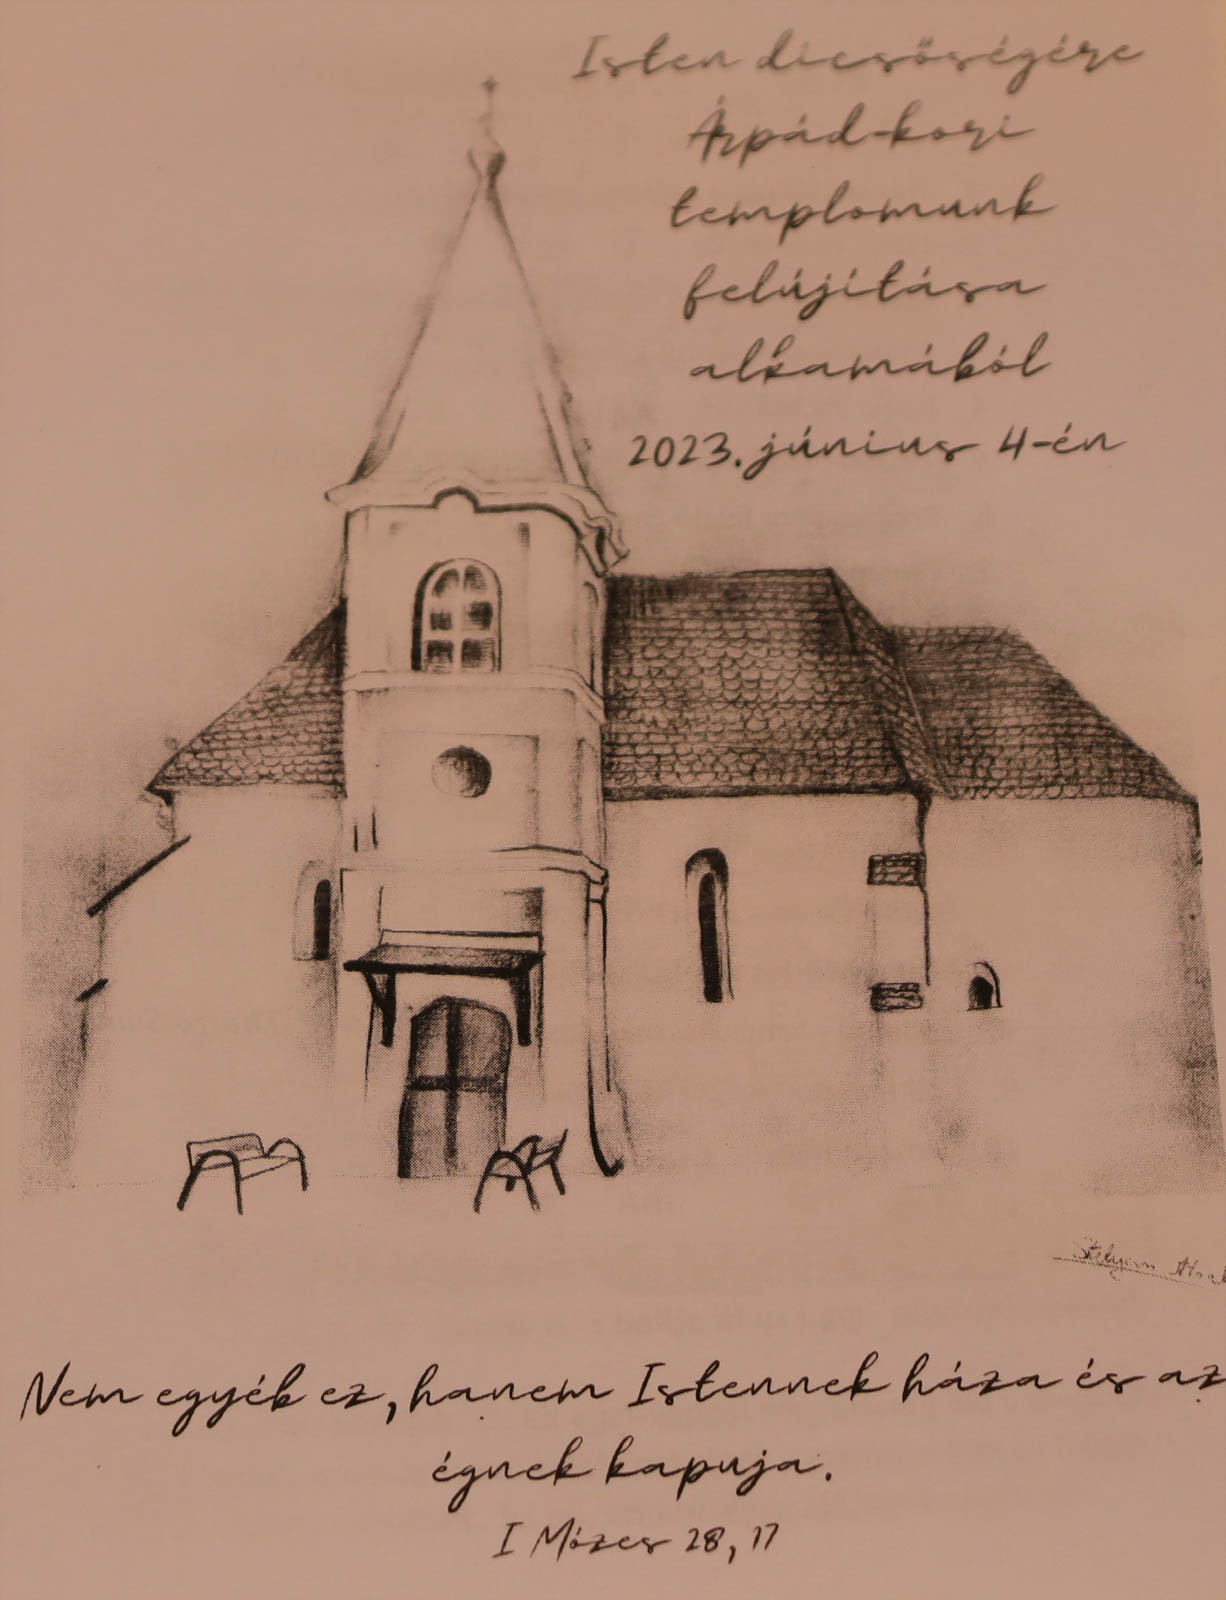 Isten dicsőségére
Árpád-kori
templomunk
felújítása
alkamából
2023. június 4-én
Nem egyéb ez, hanem Istennek háza és az
égnek kapuja.
I Mózes 28, 17